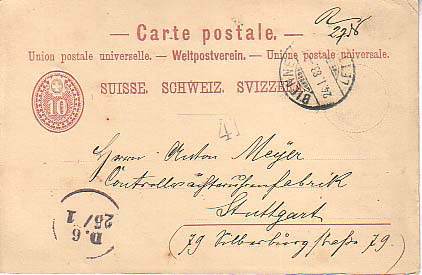 R
2956
— Carte postale. —
Union postale universelle. — Weltpostverein. — Unione postale universale.
SUISSE. SCHWEIZ. SVIZZERA
10
BIENNE
24.I.83
LET
41
Herrn Anton Meyer
Controllwächteruhrenfabrik
Stuttgart
79 Silberburgstraße 79.
D.6
25/1